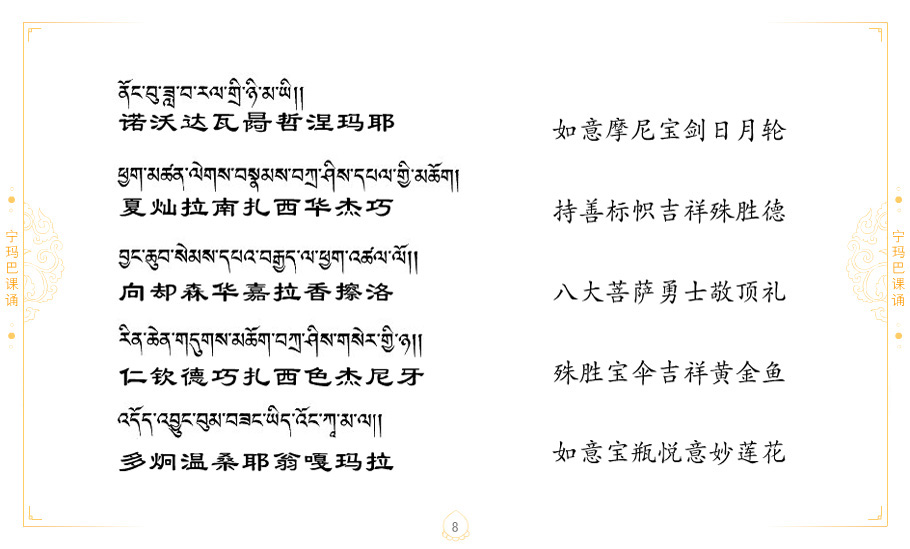 ནོར་བུ་ཟླ་བ་རལ་གྲི་ཉི་མ་ཡི།།
诺沃达瓦哲涅玛耶
如意摩尼宝剑日月轮
ཕྱག་མཚན་ལེགས་བསྣམས་བཀྲ་ཤིས་དཔལ་གྱི་མཆོག།
夏灿拉南扎西华杰巧
持善标帜吉祥殊胜德
བྱང་ཆུབ་སེམས་དཔའ་བརྒྱད་ལ་ཕྱག་འཚལ་ལོ།།
向却森华嘉拉香擦洛
八大菩萨勇士敬顶礼
རིན་ཆེན་གདུགས་མཆོག་བཀྲ་ཤིས་གསེར་གྱི་ཉ།།
仁钦德巧扎西色杰尼牙
殊胜宝伞吉祥黄金鱼
འདོད་འབྱུང་བུམ་བཟང་ཡིད་འོང་ཀཱ་མ་ལ།།
多炯温桑耶翁嘎玛拉
如意宝瓶悦意妙莲花
宁玛巴课诵
宁玛巴课诵
8